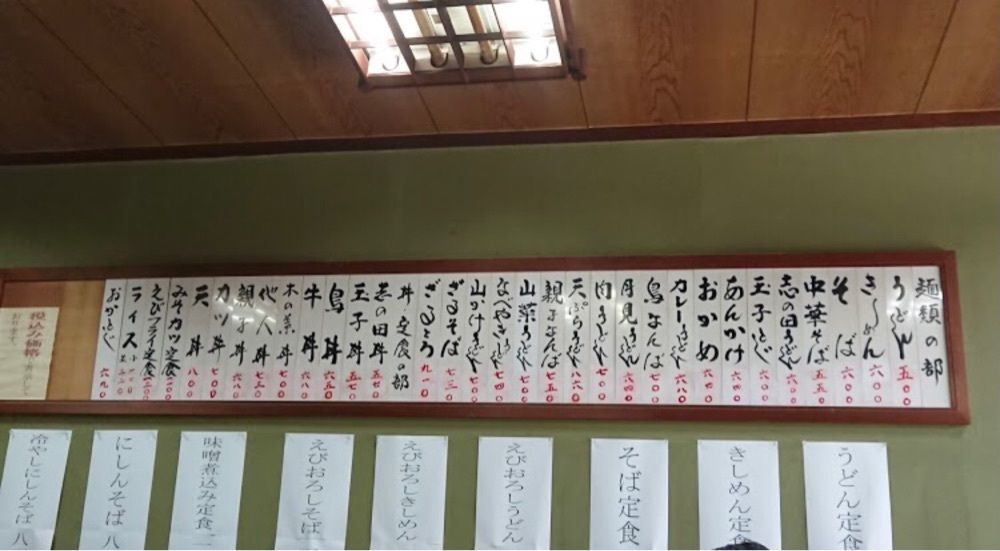 麺類の部
うどん 五五〇
きしめん 六〇〇
そば 六〇〇
中華そば 五五〇
志の田うどん 六〇〇
玉子とじ 六〇〇
あんかけ 六〇〇
おかめ 七〇〇
カレーうどん 六八〇
鳥なんば 七〇〇
月見うどん 六〇〇
肉うどん 七〇〇
天ぷらうどん 八六〇
親子なんば 七五〇
山菜うどん 七〇〇
なべやきうどん
山かけうどん 七〇〇
ざるそば 七三〇
ざるころ 九一〇
丼・定食の部
志の田丼 五七〇
玉子丼 五七〇
鳥丼 六五〇
牛丼 七〇〇
木の葉丼 七〇〇
他人丼 七三〇
親子丼 六八〇
カツ丼 七〇〇
天丼 八〇〇
みそカツ定食
えびフライ定食
ライス 小 大
おかとじ 六九〇
税込み価格
うどん定食
きしめん定食
そば定食
えびおろしうどん
えびおろしきしめん
えびおろしそば
味噌煮込み定食
にしんそば 八
冷やしにしんそば 八